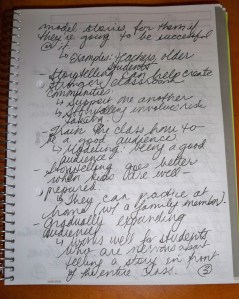 model stories for them if
they're going to be successful
@ it.
↳ Examples: teachers, older
students
- Storytelling can help create
stronger classroom
communities.
↳ Support one another
↳ Storytelling involves risk
taking.
- Train the class how to
be a good audience.
↳ Modeling being a good
audience.
- Storytelling goes better
when kids are well-
prepared.
↳ They can practice at
home (w/ a family member).
- Gradually expanding
audience
↳ Works well for students
who are nervous about
telling a story in front
of the entire class.
3